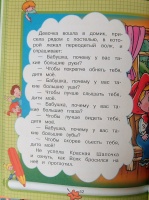 Девочка вошла в домик, при-
села рядом с постелью, в кото-
рой лежал переодетый волк, и
спрашивает:
— Бабушка, почему у вас та-
кие большие руки?
— Чтобы покрепче обнять тебя,
дитя моё.
— Бабушка, почему у вас та-
кие большие уши?
— Чтобы лучше слышать тебя,
дитя моё.
— Бабушка, почему у вас та-
кие большие глаза?
— Чтобы лучше видеть тебя,
дитя моё.
— Бабушка, почему у вас та-
кие большие зубы?
— Чтобы скорее съесть тебя,
дитя моё.
Не успела Красная Шапочка
и ахнуть, как Волк бросился на
неё и проглотил.